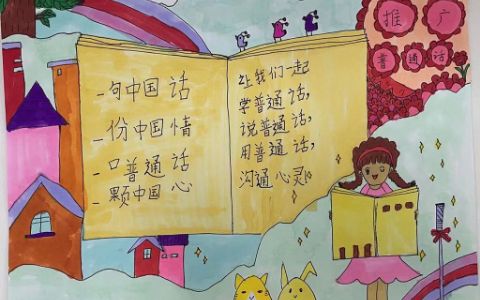 推广
普通话
一句中国话
一份中国情
一口普通话
一颗中国心
让我们一起
学普通话,
说普通话,
用普通话,
沟通心灵